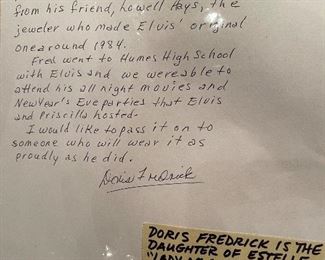 from his friend, Lowell Hays, the
jeweler who made Elvis' original
one around 1984.
Fred went to Humes High School
with Elvis and we were able to
attend his all night movies and
New Year's Eve parties that Elvis
and Priscilla hosted.
I would like to pass it on to
someone who will wear it as
proudly as he did.
Doris Fredrick
DORIS FREDRICK IS THE
DAUGHTER OF ESTELLE